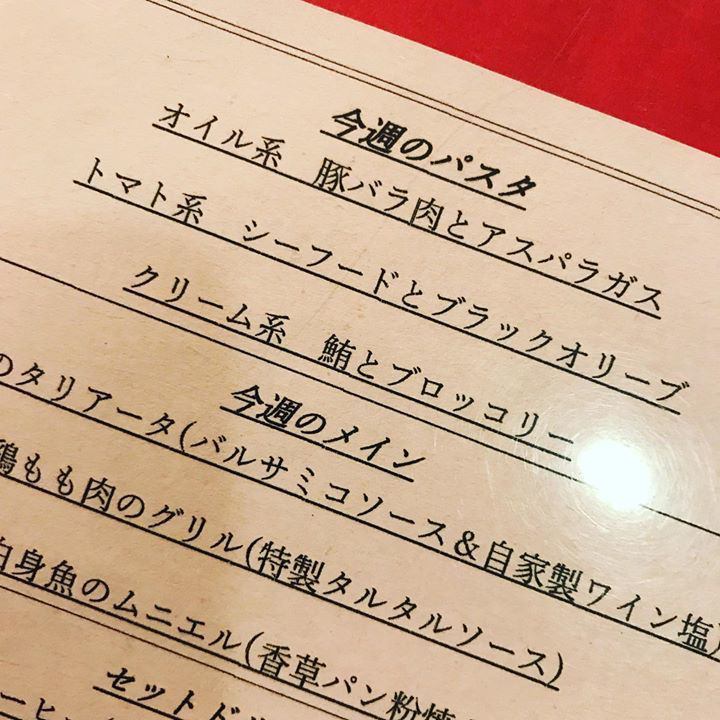 今週のパスタ
オイル系 豚バラ肉とアスパラガス
トマト系 シーフードとブラックオリーブ
クリーム系 鮪とブロッコリー
今週のメイン
のタリアータ(バルサミコソース&自家製ワイン塩)
鶏もも肉のグリル(特製タルタルソース)
白身魚のムニエル(香草パン粉焼
セットド
ーヒ